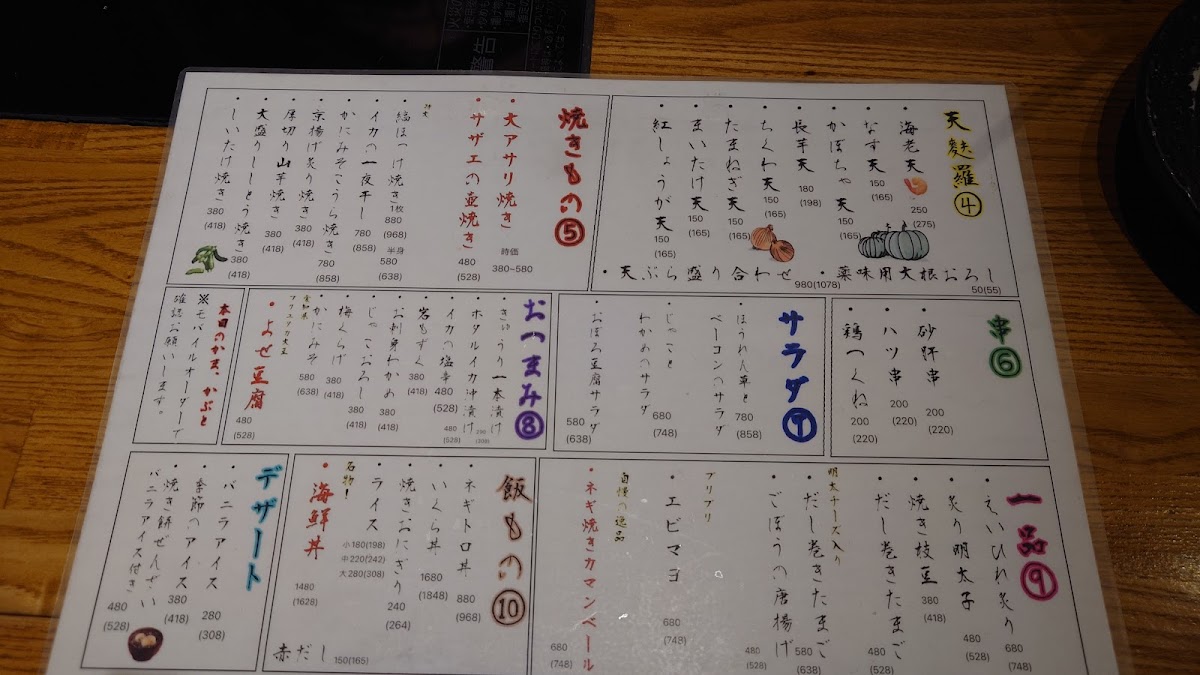 天麩羅④
・海老天 250 (275)
・なす天 150 (165)
・かぼちゃ天 150 (165)
・長芋天 180 (198)
・ちくわ天 150 (165)
・たまねぎ天 150 (165)
・まいたけ天 150 (165)
・紅しょうが天 150 (165)
・天ぷら盛り合わせ 980(1078)
・薬味用大根おろし 50(55)
焼きもの⑤
・大アサリ焼き 時価 380~580
・サザエの壺焼き 480 (528)
・縞ほっけ焼き 1枚 880 (968) 半身 580 (638)
・イカの一夜干し 780 (858)
・かにみそこうら焼き 780 (858)
・京揚げ炙り焼き 380 (418)
・厚切り山芋焼き 380 (418)
・大盛りししとう焼き 380 (418)
・しいたけ焼き 380 (418)
串⑥
・砂肝串 200 (220)
・ハツ串 200 (220)
・鶏つくね 200 (220)
サラダ⑦
・ほうれん草と
ベーコンのサラダ 780 (858)
・じゃこと
わかめのサラダ 680 (748)
・おぼろ豆腐サラダ 580 (638)
おつまみ⑧
・きゅうり一本漬け 290 (308)
・ホタルイカ沖漬け 480 (528)
・イカの塩辛 480 (528)
・岩もずく 380 (418)
・お刺身わかめ 380 (418)
・じゃこおろし 380 (418)
・梅くらげ 380 (418)
・かにみそ 580 (638)
愛知県
フクユタカ大豆
・よせ豆腐 480 (528)
本日のかま、かぶと
※モバイルオーダーで
確認お願いします。
一品⑨
・えいひれ炙り 680 (748)
・炙り明太子 480 (528)
・焼き枝豆 380 (418)
・だし巻きたまご 480 (528)
明太チーズ入り
・だし巻きたまご 580 (638)
・ごぼうの唐揚げ 480 (528)
プリプリ
・エビマヨ 680 (748)
自慢の逸品
・ネギ焼きカマンベール 680 (748)
飯もの⑩
・ネギトロ丼 880 (968)
・いくら丼 1680 (1848)
・焼きおにぎり 240 (264)
・ライス 小180(198) 中220(242) 大280(308)
名物!
・海鮮丼 1480 (1628)
赤だし 150(165)
デザート
・バニラアイス 280 (308)
・季節のアイス 380 (418)
・焼き餅ぜんざい
バニラアイス付き 480 (528)
警告